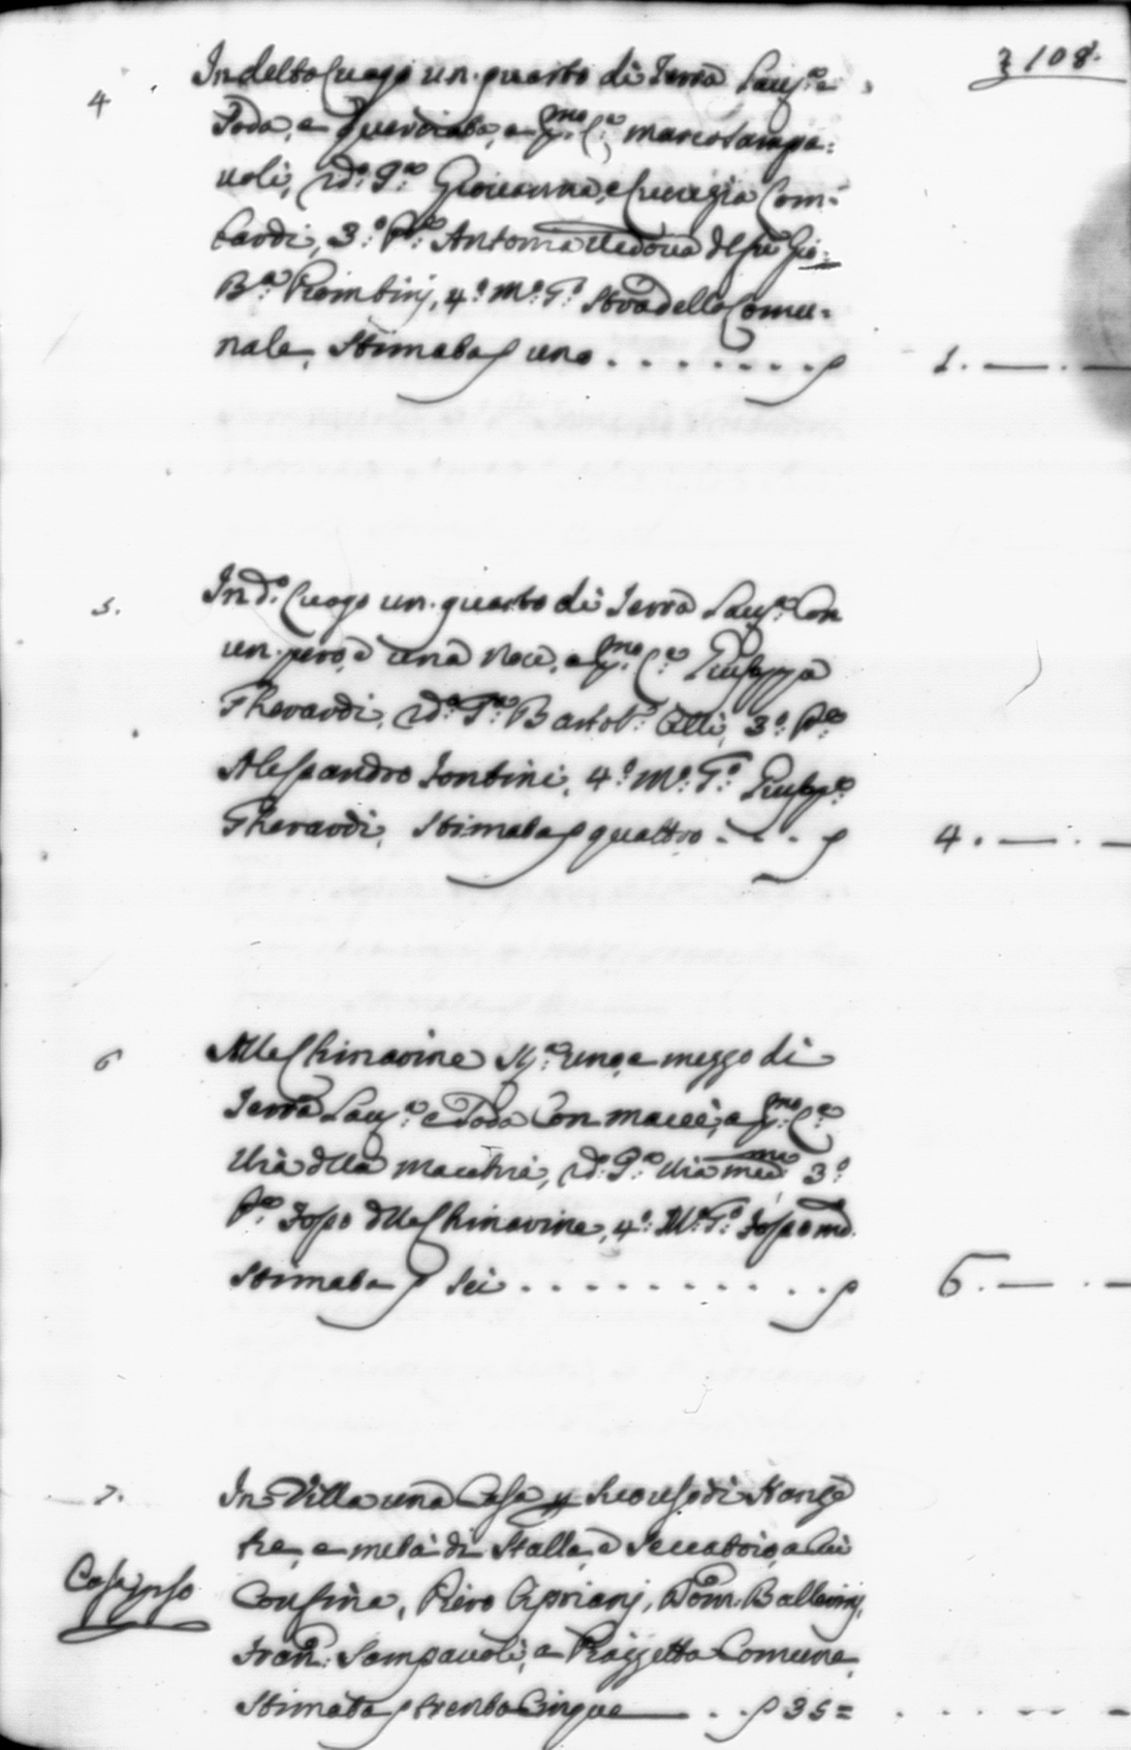 108.
4 In detto Luogo un quarto di Terra Lau:a e
Soda, e Querciata, a p:mo C:o Marco Sampa=
uoli, 2.do P:o Giouanna, e Lucrezia Lom=
bardi, 3.o P:o Antonia Vedoua del fu Gio:
B:a Piombinj, 4.o M:o T:o Stradello Comu=
nale, Stimata S uno . . . . . . . S 1. — . —
5. In d.o Luogo un quarto di Terra Lau:a Con
un pero, e una noce, a p:mo C:o Giuseppe
Gherardi, 2.do P:o Bartol:o Celli, 3.o P:o
Alessandro Tontini, 4.o M:o T:o Giusep:e
Gherardi, Stimata S quattro . . . . S 4. — . —
6 Alle Chinavine St:a uno, e mezzo di
Terra Lau:a e Soda Con macee, a p:mo C:o
Via della macchie, 2.do P:o Via med.ma 3.o
P:o Fosso delle Chinavine, 4.o M:o T:o Fosso md.
Stimata S Sei . . . . . . . . . . . S 6. — . —
7. In Villa una Casa p Suo uso di Stanze
tre, e metà di Stalla, e Seccatoio, a Cui
Casa p uso
Confina, Piero Ciprianj, Dom: Ballerinj,
Fran: Sampauoli, e Piazzetta Comune,
Stimata S trenta Cinque — . . S 35 =